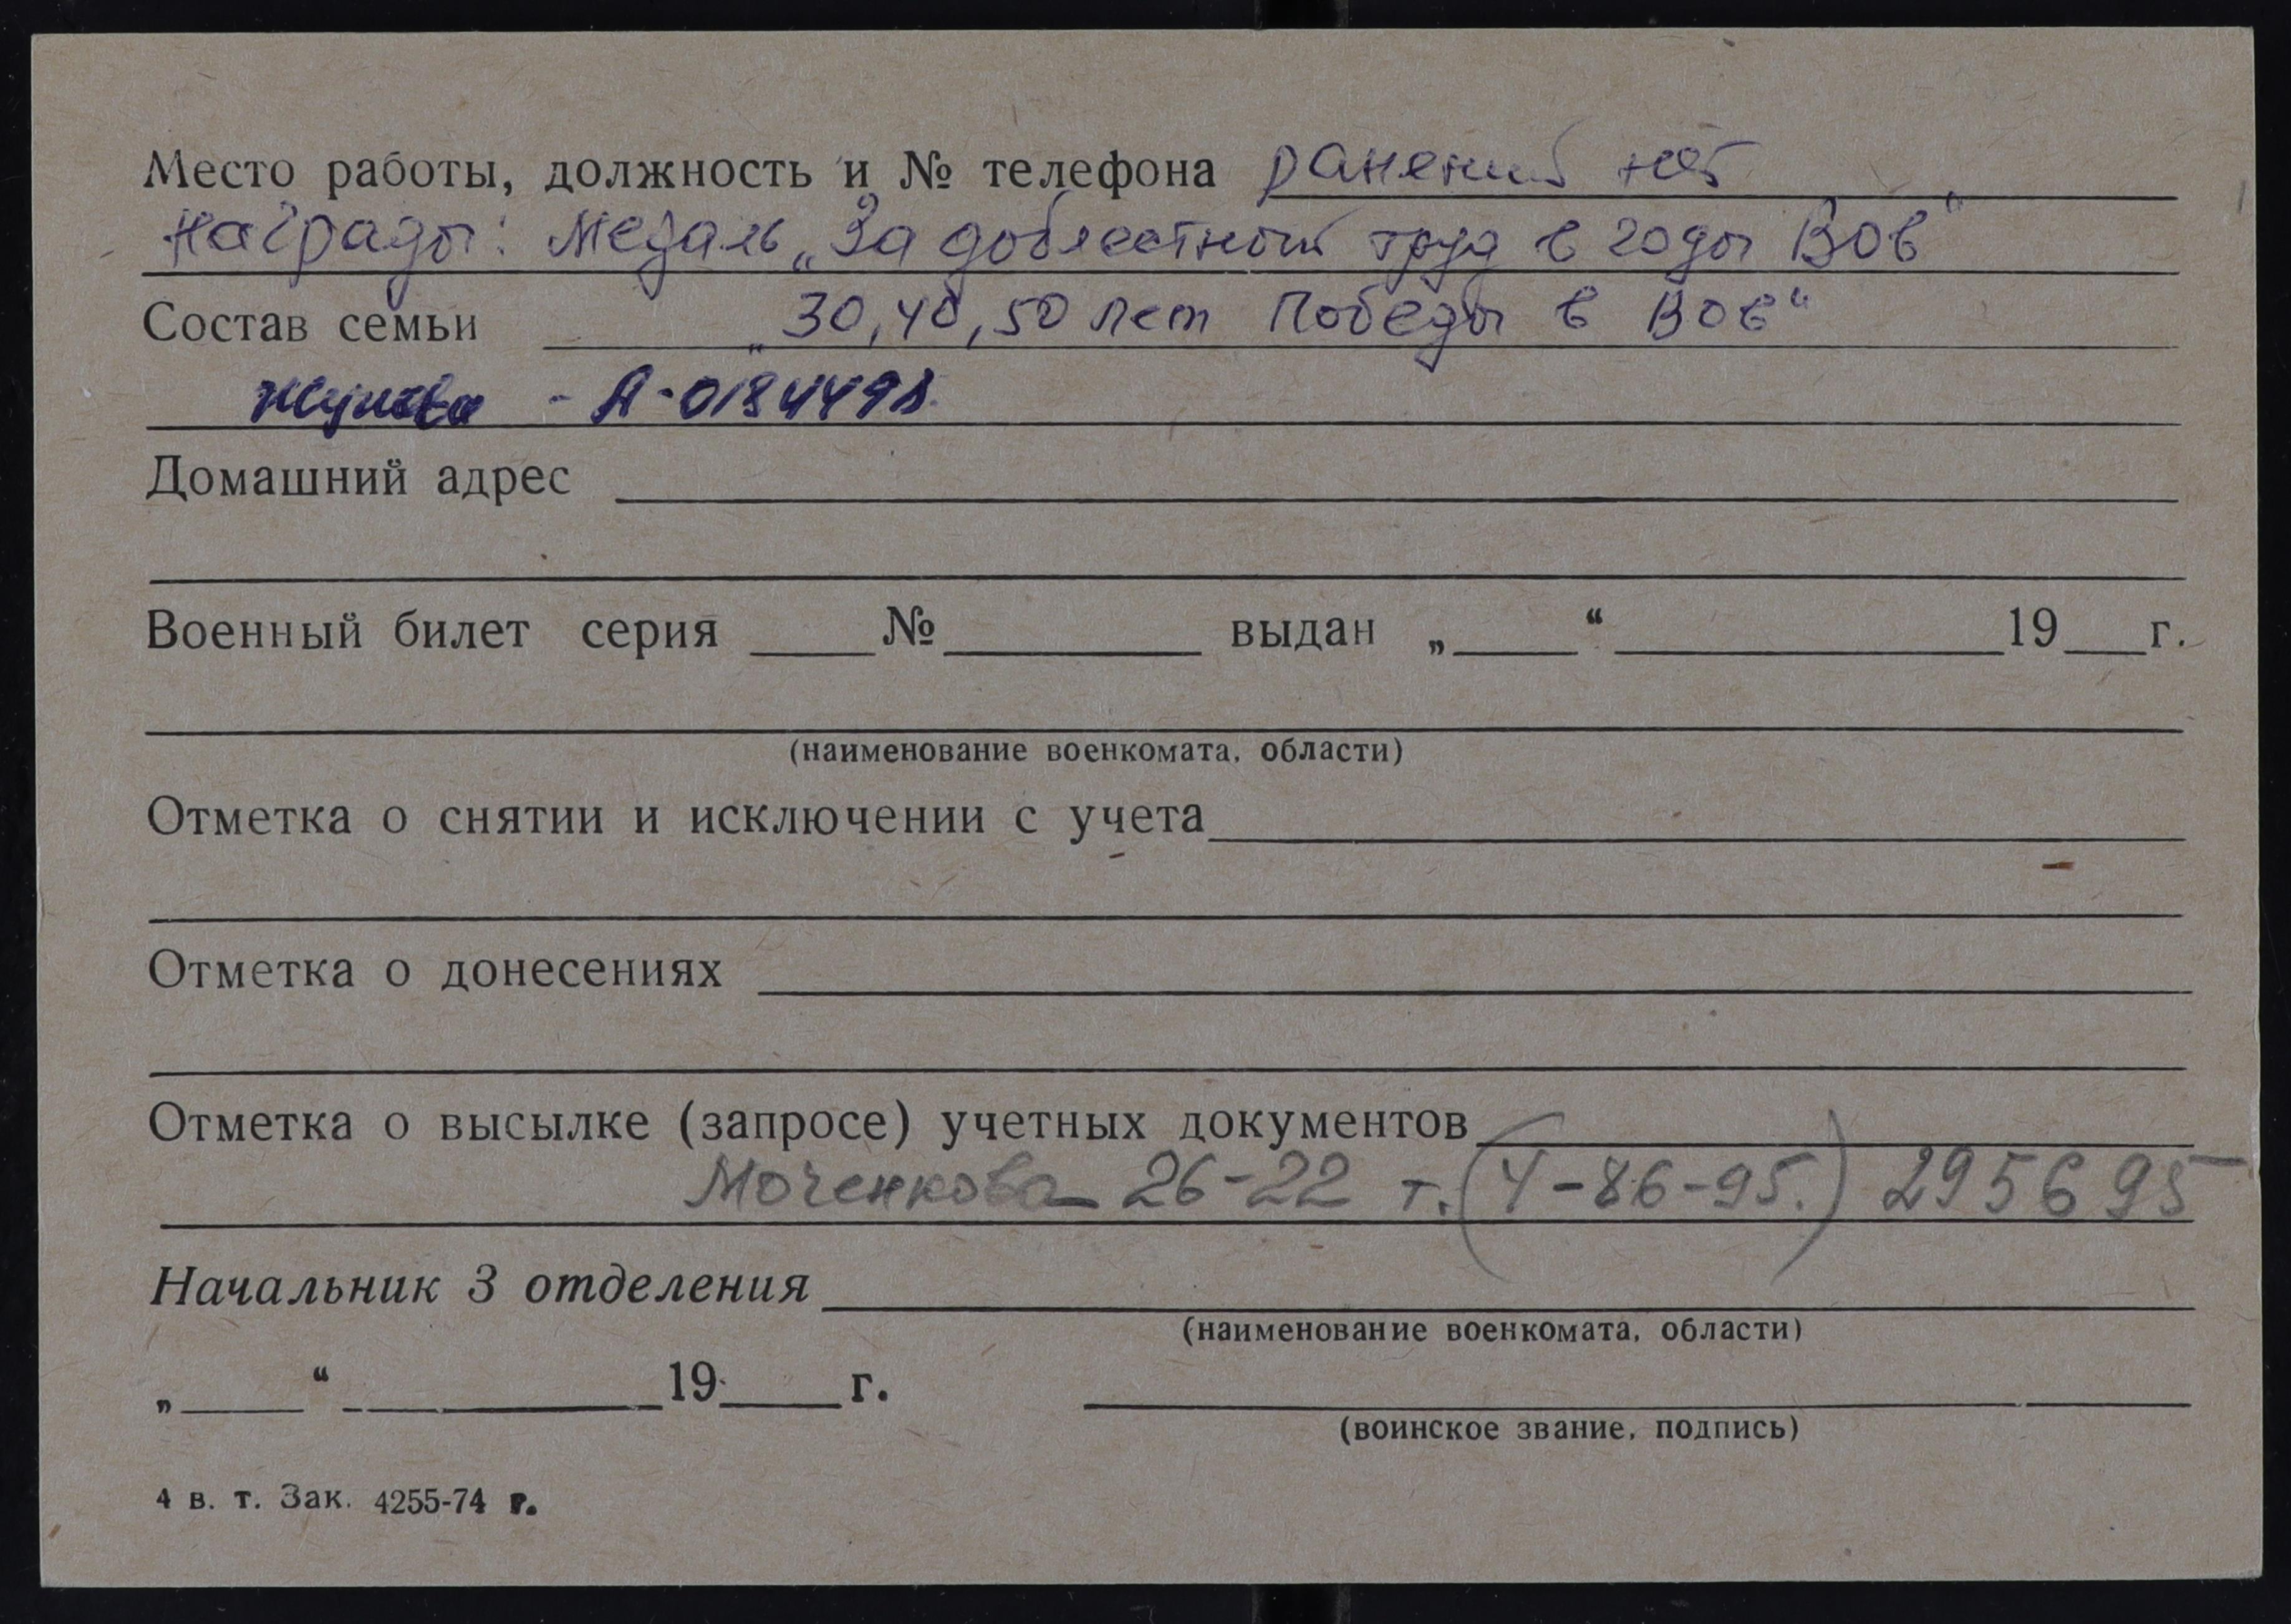 Место работы, должность и № телефона ранений нет
Награды: Медаль „За доблестный труд в годы ВОв“
Состав семьи „30, 40, 50 лет Победы в ВОв“
Жукова - А-0184498
Домашний адрес
Военный билет серия ____ № ________ выдан „____“ ____________ 19___г.
(наименование военкомата, области)
Отметка о снятии и исключении с учета
Отметка о донесениях
Отметка о высылке (запросе) учетных документов
Моченкова 26-22 т. (4-86-95.) 295695
Начальник 3 отделения
(наименование военкомата, области)
„____“ __________ 19____г.
(воинское звание, подпись)
4 в. т. Зак. 4255-74 г.